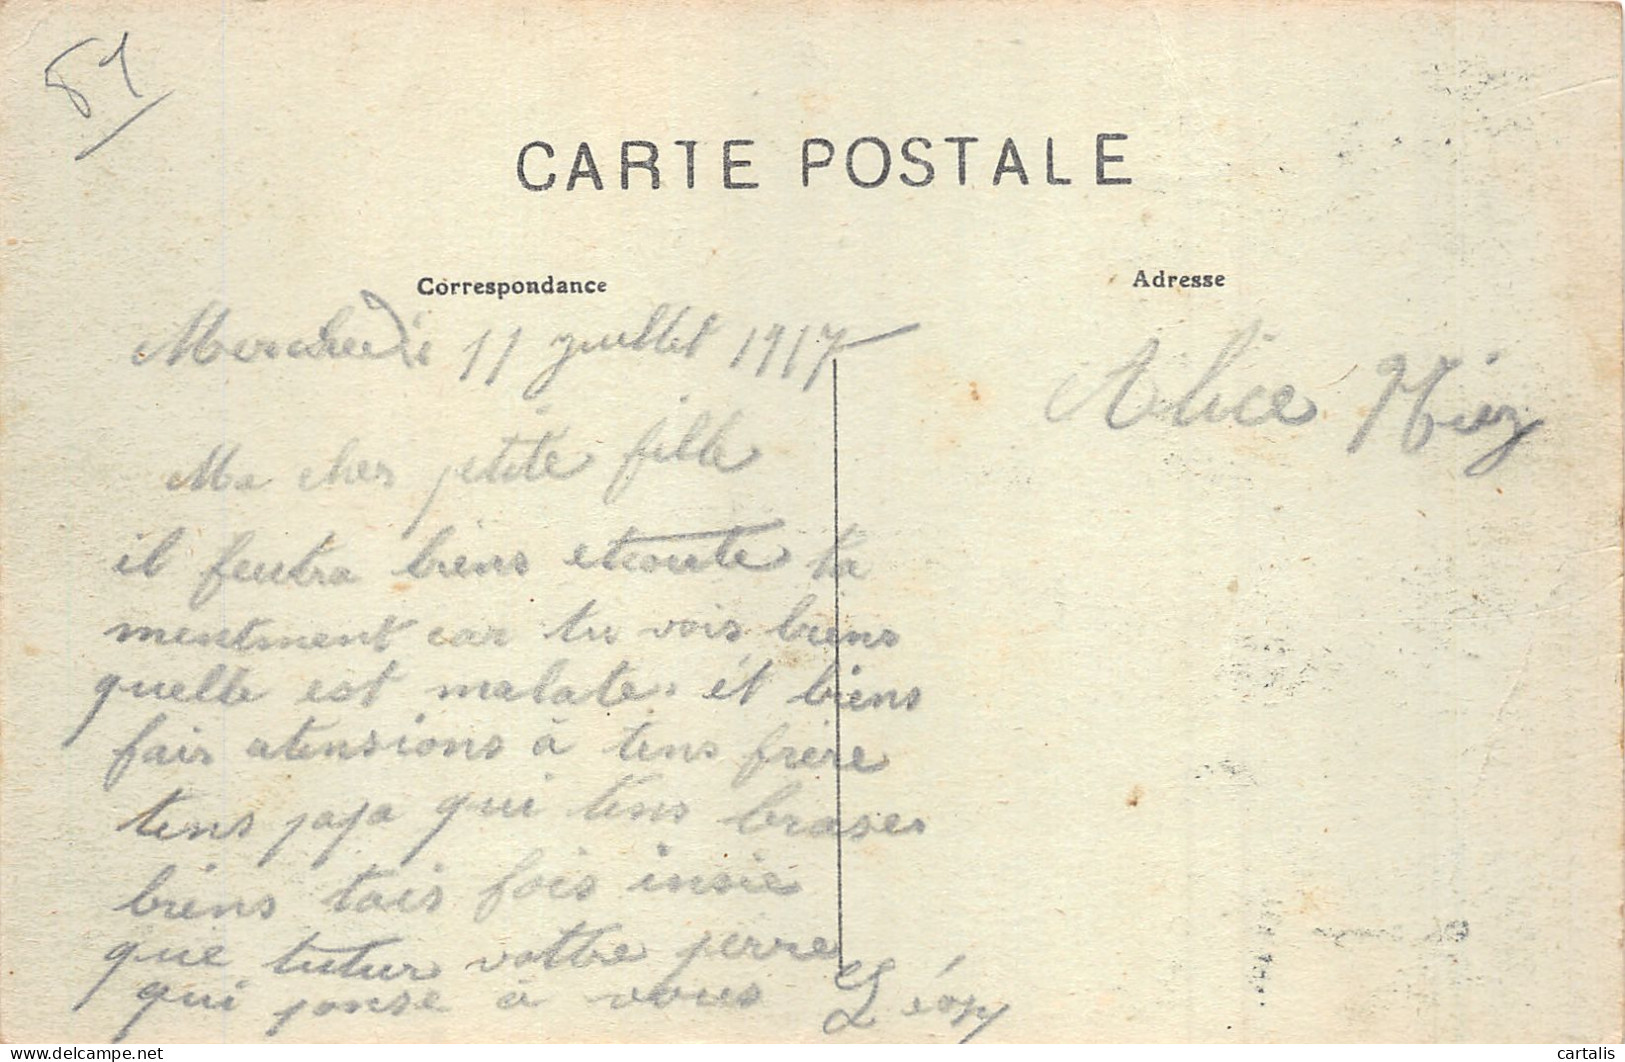 81
CARTE POSTALE
Correspondance
Adresse
Mercredi 11 juillet 1917
Alice
Ma cher petite fille
il feutra biens etcoute ta
mentment car tu vois biens
quelle est malate. ét biens
fair atensions à tens frère
tens papa qui tens brases
biens tais fois insie
que tutur vottre perre
qui panse à vous Léon
cartalis